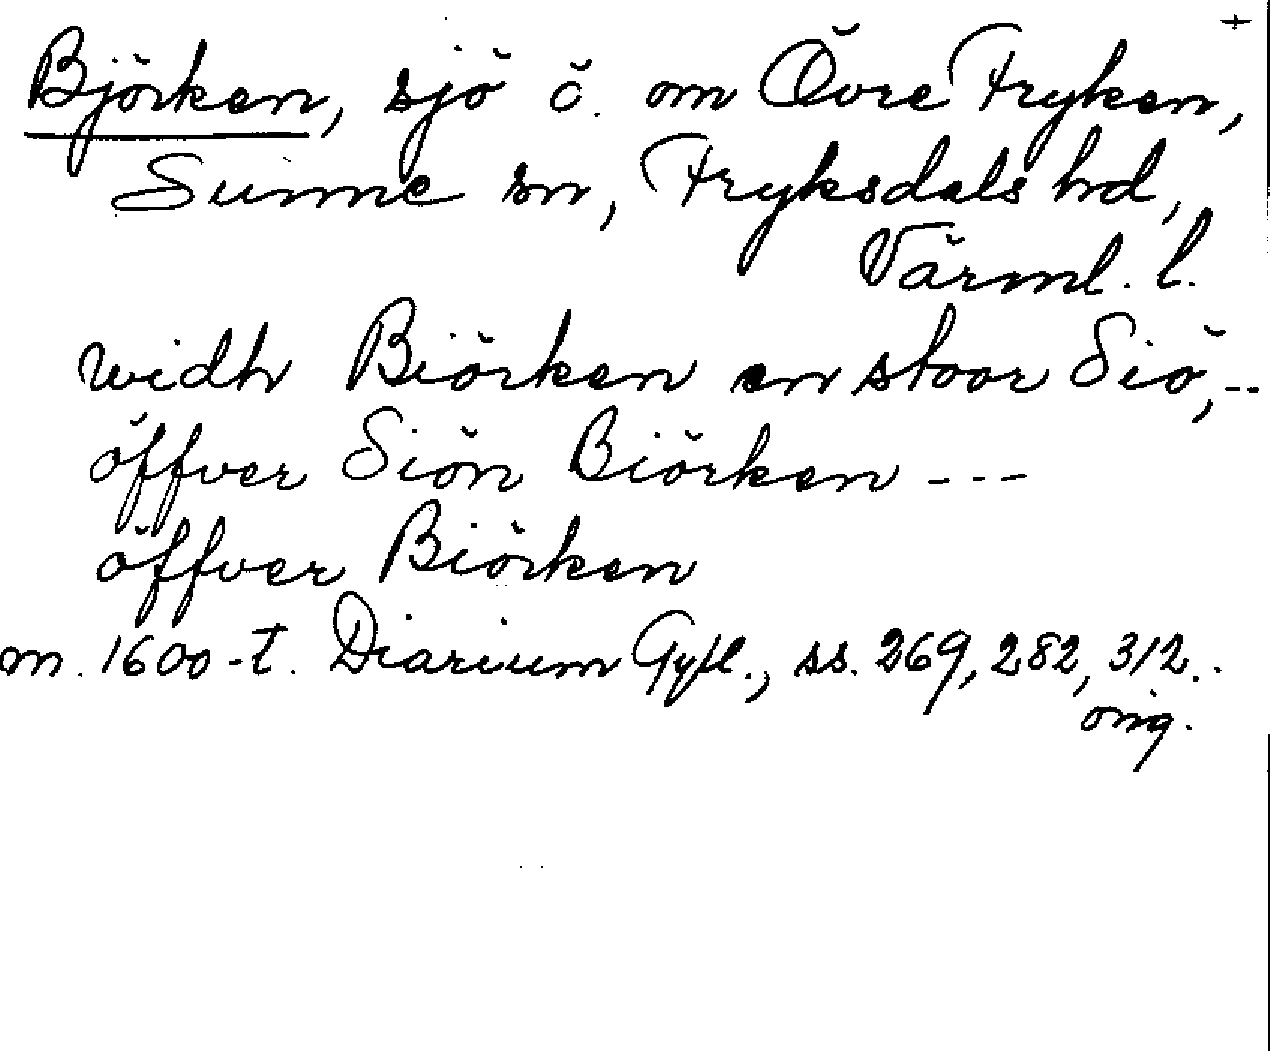 +
Björken, sjö ö. om Övre Fryken,
Sunne sn, Fryksdals hd,
Värml. l.
widh Biörken en stoor Siö,--
öffver Siön Biörken ---
öffver Biörken
m. 1600-t. Diarium Gyll., ss. 269, 282, 312..
orig.